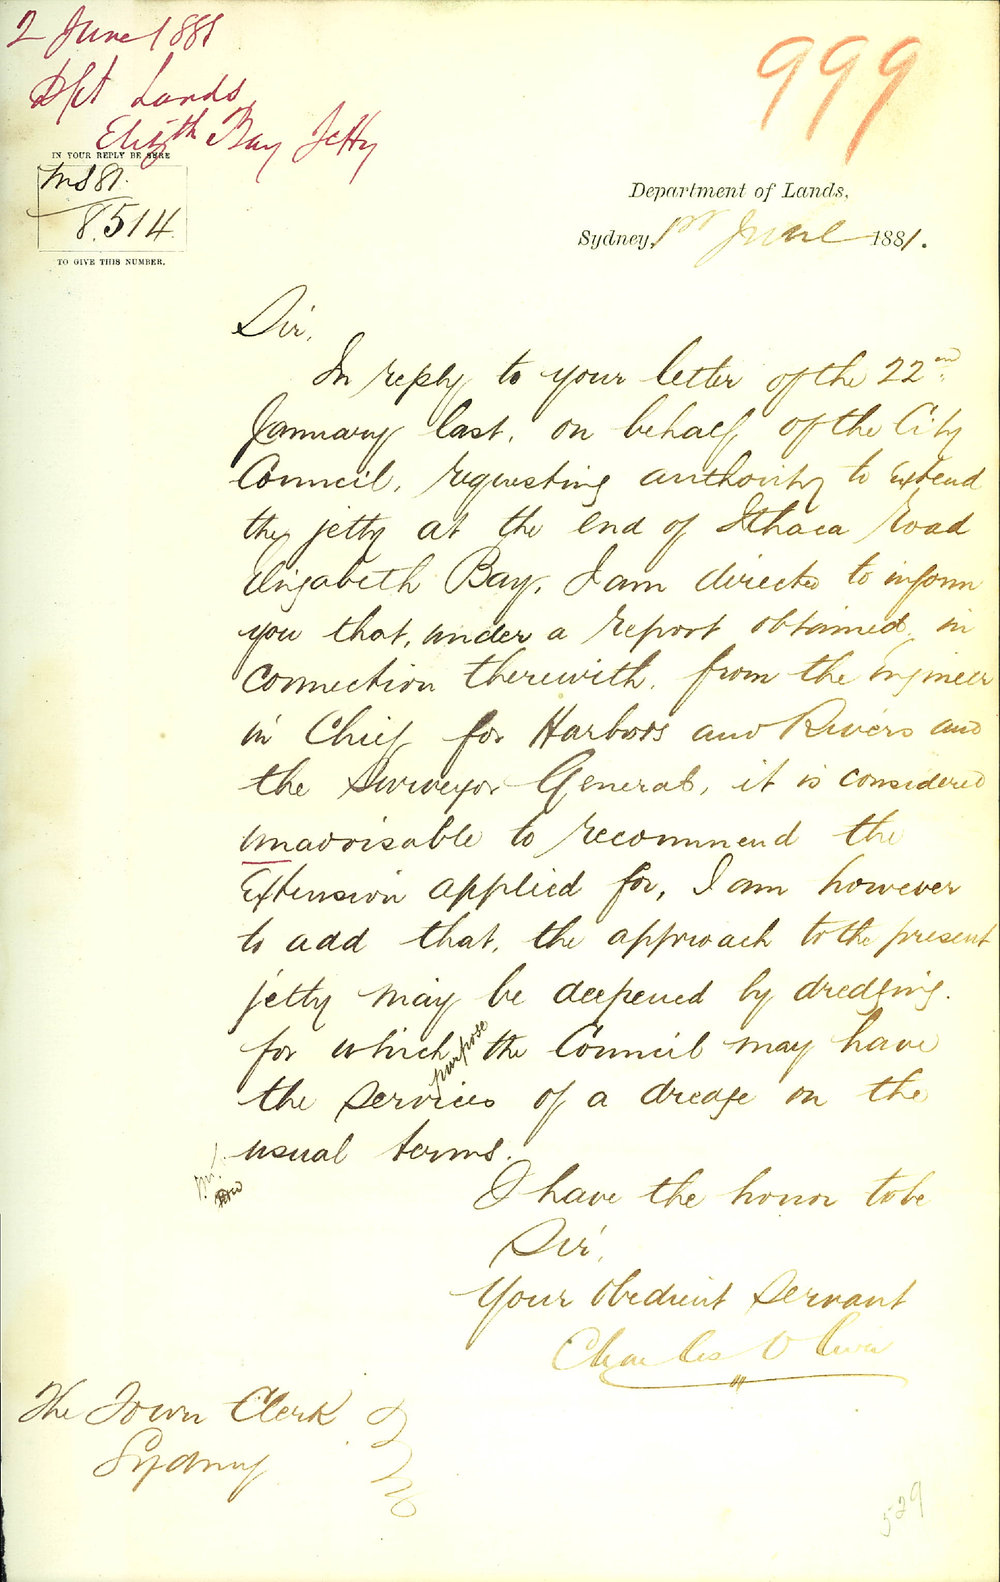 2 June 1881
Dpt Lands
Elizth Bay Jetty
999
IN YOUR REPLY BE SURE
Ms 81.
8.514
TO GIVE THIS NUMBER.
Department of Lands,
Sydney, 1st June 1881.
Sir,
In reply to your letter of the 22nd
January last, on behalf of the City
Council, requesting authority to extend
the jetty at the end of Ithaca Road
Elizabeth Bay, I am directed to inform
you that, under a report obtained, in
connection therewith, from the Engineer
in Chief for Harbors and Rivers and
the Surveyor General, it is considered
unadvisable to recommend the
Extension applied for, I am however
to add that, the approach to the present
jetty may be deepened by dredging.
for which purpose the Council may have
the services of a dredge on the
usual terms.
I have the honor to be
Sir,
Your Obedient Servant
Charles Oliver
The Town Clerk
Sydney
529